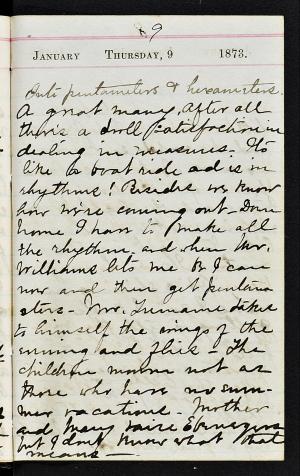 9
JANUARY THURSDAY, 9 1873.
pentameters & hexameters.
A great many. After all
there's a droll satisfaction in
dealing in measures. It's
like a boat ride and is in
rhythms! Besides we know
how we're coming out. Down
home I have to make all
the rhythm and when Mr.
Williams lets me to I can
now and then get pentame
ters - Mr. takes
to himself the wings of the
morning and flies - The
children mourn not as
those who have no sum-
mer vacations. Mother
and Mary raise Ebenezers
but I don't know what that
means -